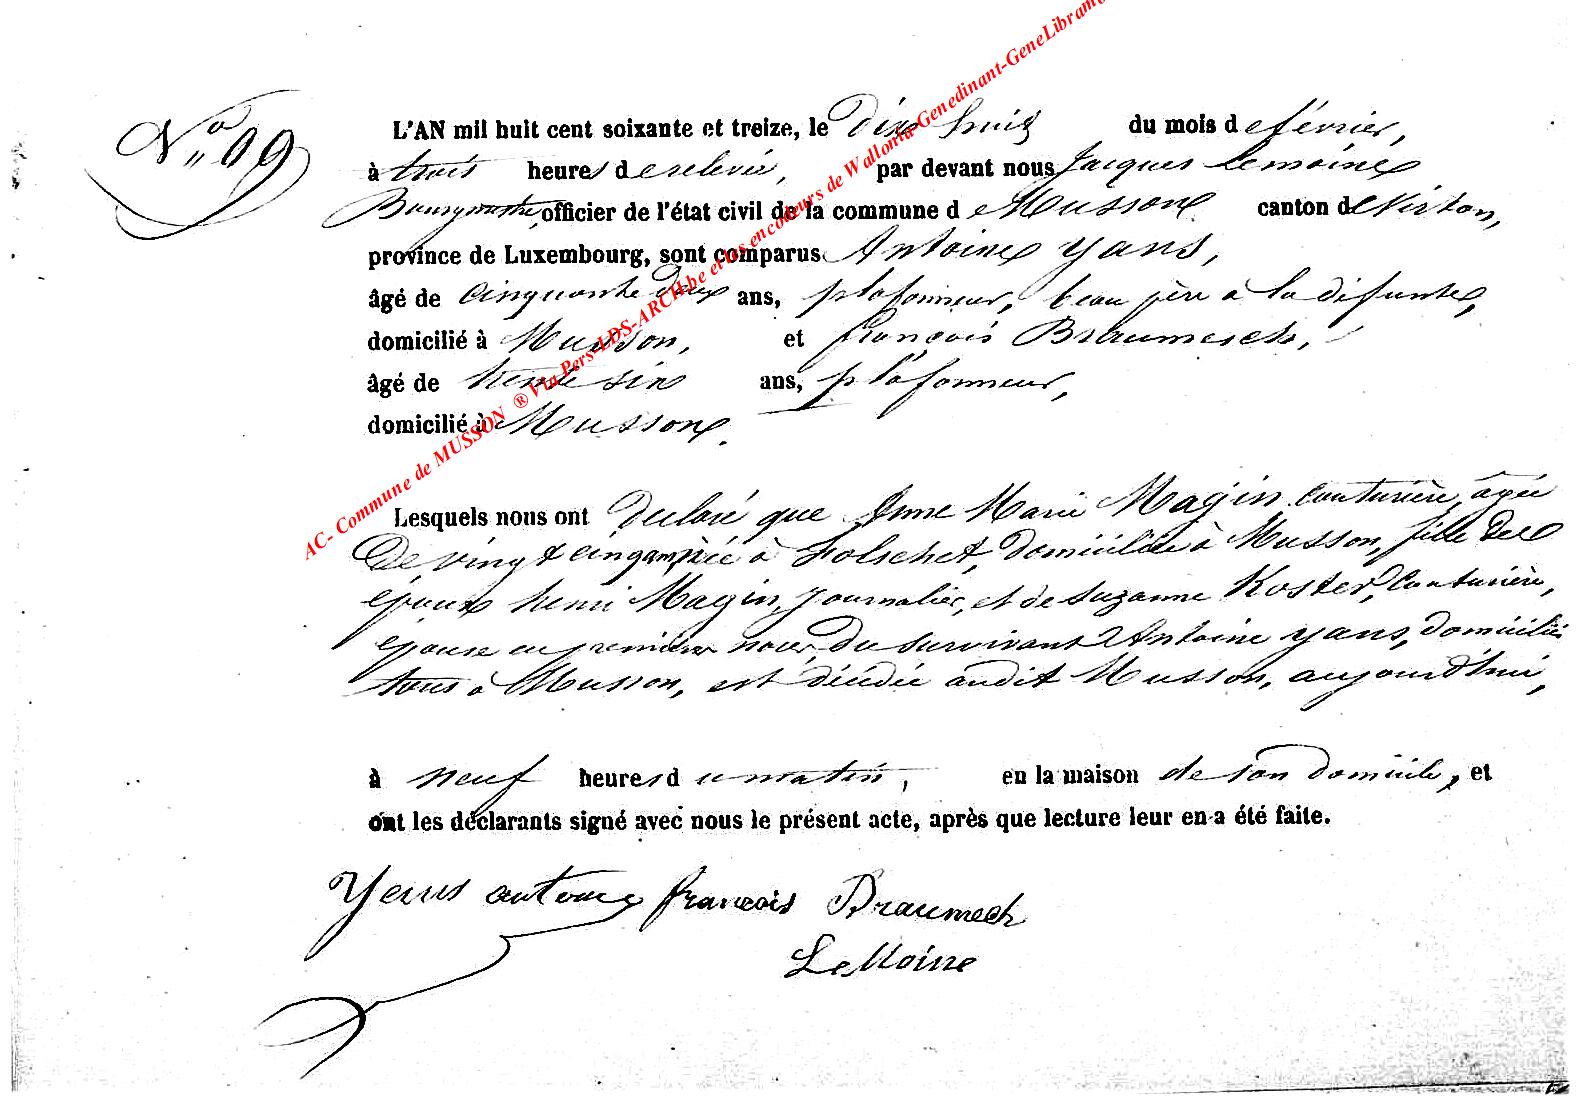 N° 09
L'AN mil huit cent soixante et treize, le dix huit du mois de février,
à trois heures de relevée, par devant nous Jacques Lemoine
Bourgmestre, officier de l'état civil de la commune de Musson canton de Virton,
province de Luxembourg, sont comparus Antoine Yans,
âgé de cinquante deux ans, plafonneur, beau père à la défunte,
domicilié à Musson, et françois Braumesch,
âgé de trente six ans, plafonneur,
domicilié à Musson.
AC- Commune de MUSSON ® Via Pers-LDS-ARCH.be et les encodeurs de Wallonia-Genedinant-GeneLibramo
Lesquels nous ont déclaré que Anne Marie Magin, couturière, âgée
de vingt cinq ans, née à Folschet, domiciliée à Musson, fille des
époux henri Magin, journalier, et de Suzanne Koster, couturière,
épouse en premières noces du survivant Antoine Yans, domiciliés
tous à Musson, est décédée audit Musson, aujourd'hui,
à neuf heures du matin, en la maison de son domicile, et
ont les déclarants signé avec nous le présent acte, après que lecture leur en a été faite.
Yans antoine françois Braumech
LeMoine